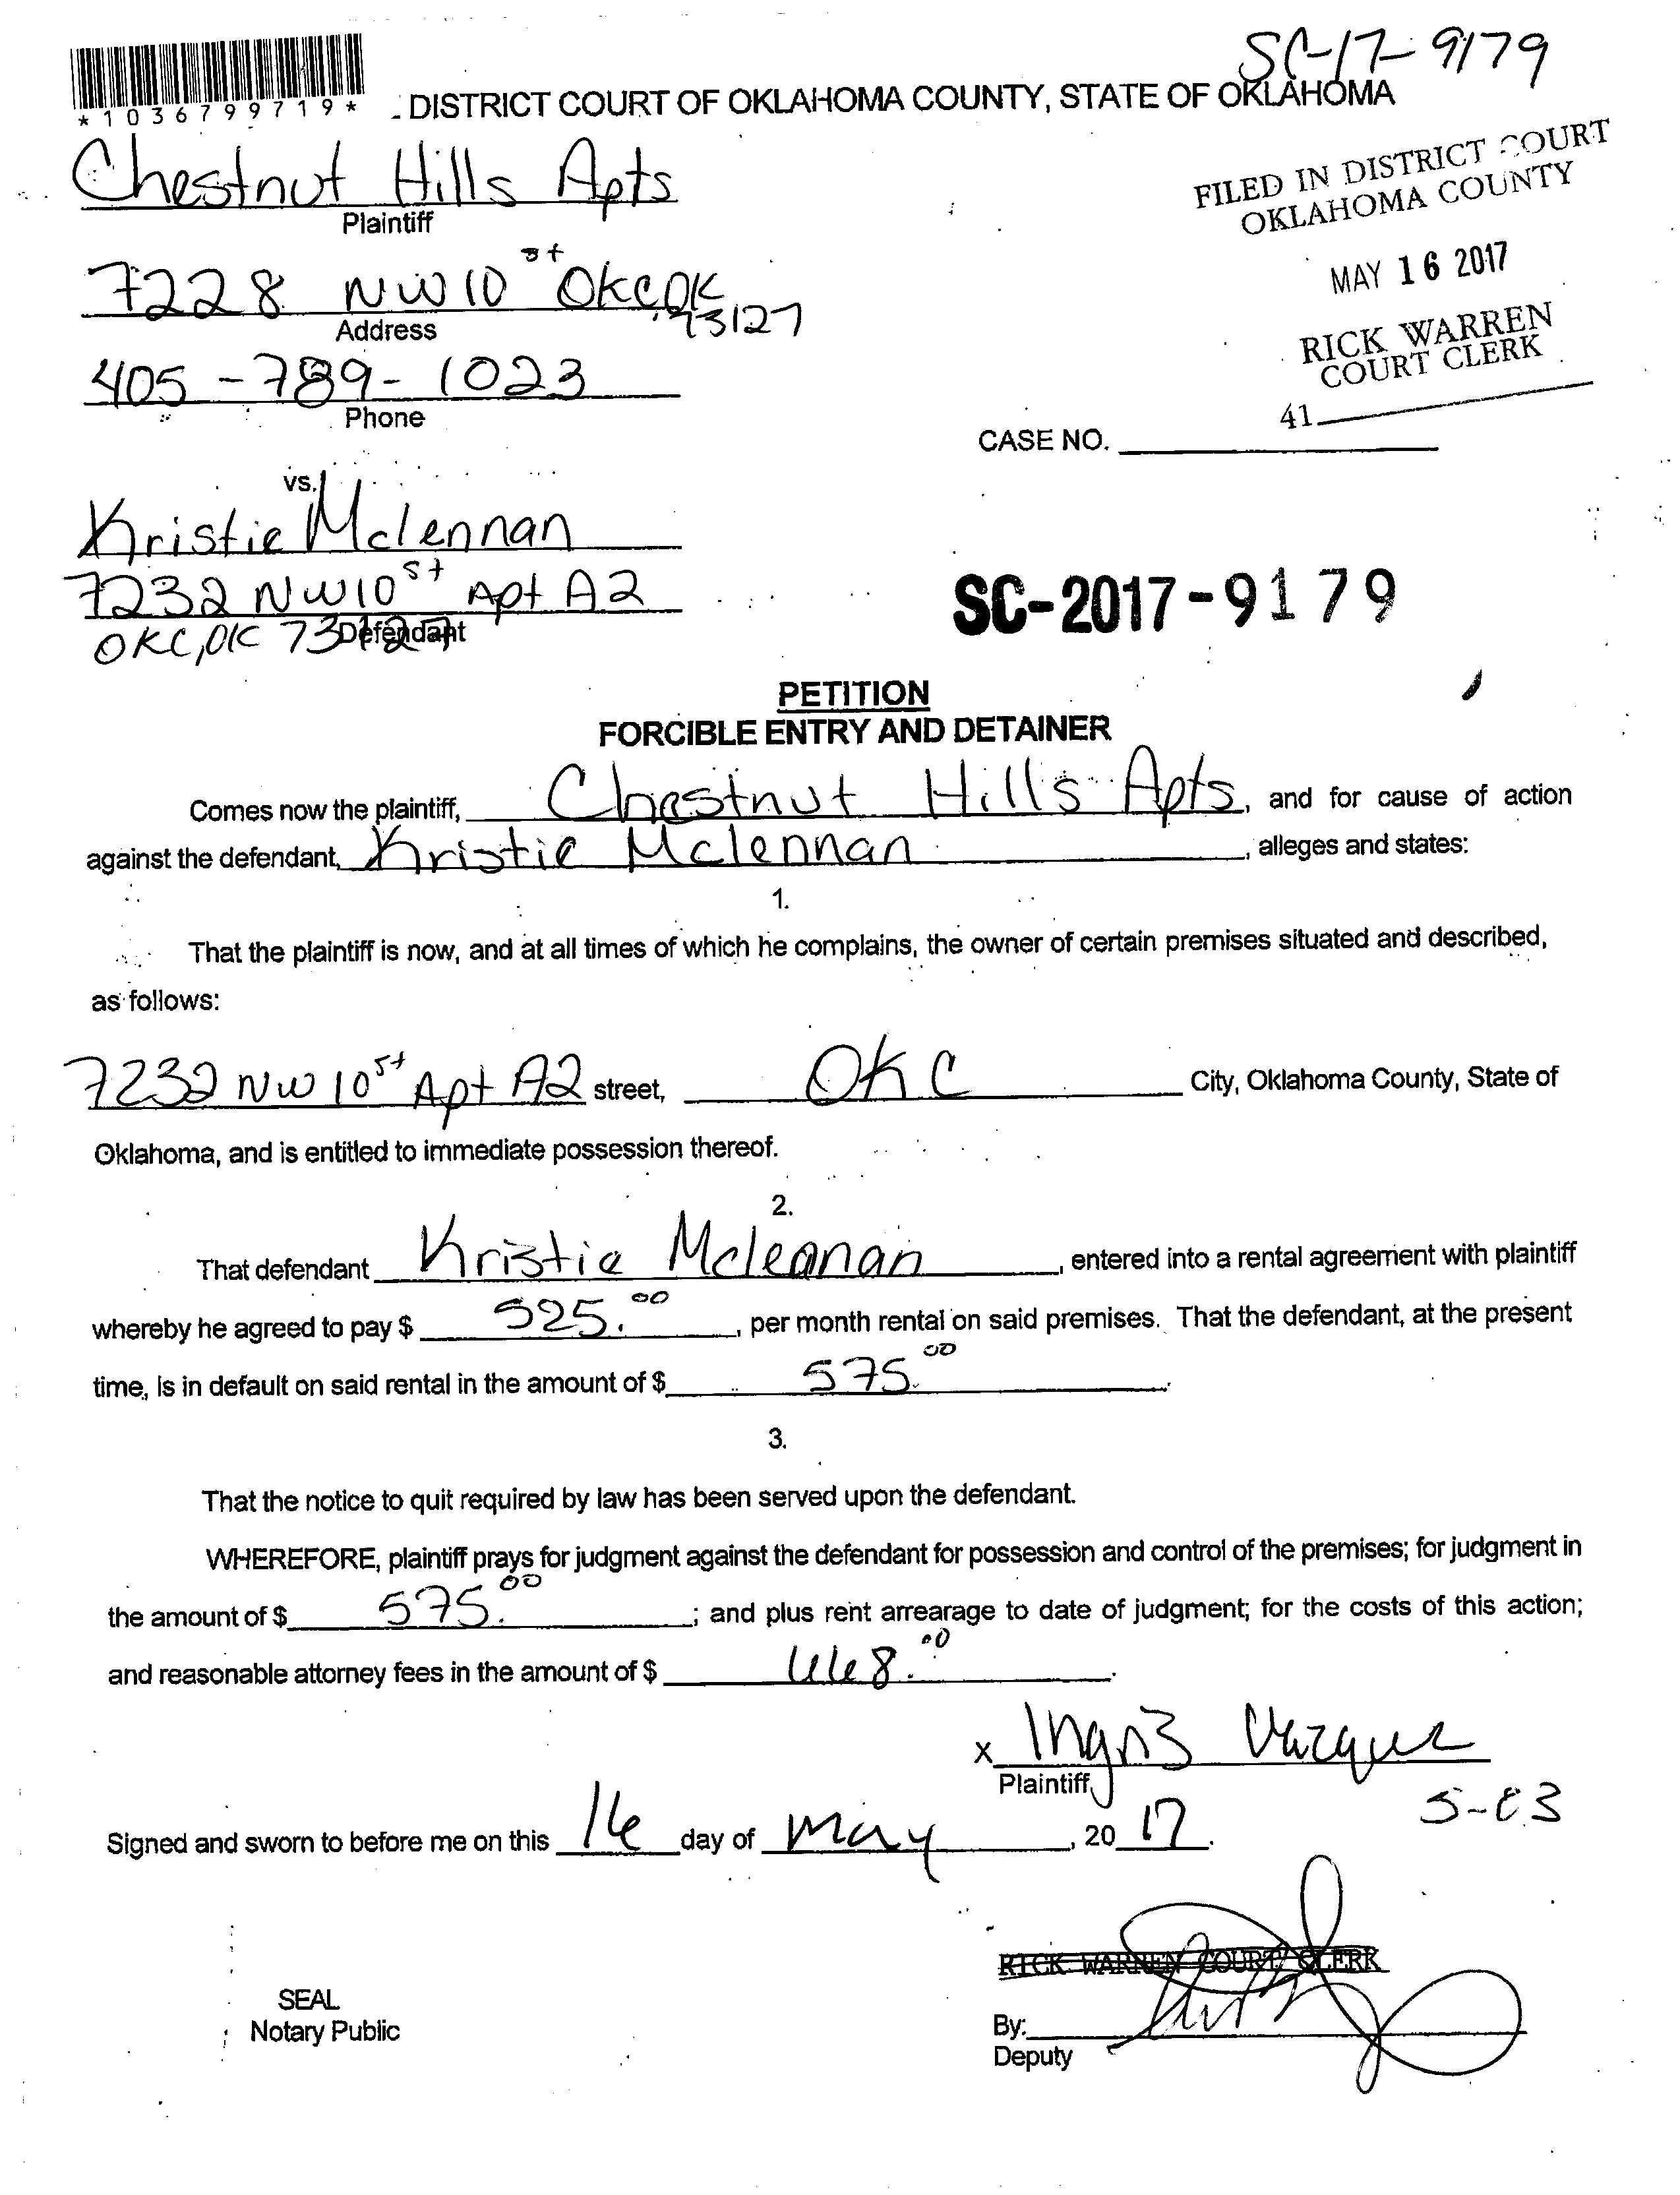 SC-17-9179
*1036799719*
DISTRICT COURT OF OKLAHOMA COUNTY, STATE OF OKLAHOMA
Chestnut Hills Apts
Plaintiff
FILED IN DISTRICT COURT
OKLAHOMA COUNTY
7228 NW 10 st OKC, OK 73127
Address
MAY 16 2017
RICK WARREN
COURT CLERK
405-789-1023
Phone
41
CASE NO.
vs.
Kristie Mclennan
7232 NW 10 st Apt A2
OKC, OK 73127
Defendant
SC-2017-9179
PETITION
FORCIBLE ENTRY AND DETAINER
Comes now the plaintiff, Chestnut Hills Apts, and for cause of action
against the defendant, Kristie Mclennan, alleges and states:
1.
That the plaintiff is now, and at all times of which he complains, the owner of certain premises situated and described,
as follows:
7232 NW 10 st Apt A2 street, OKC City, Oklahoma County, State of
Oklahoma, and is entitled to immediate possession thereof.
2.
That defendant Kristie Mclennan, entered into a rental agreement with plaintiff
whereby he agreed to pay $ 525.00, per month rental on said premises. That the defendant, at the present
time, is in default on said rental in the amount of $ 575.00.
3.
That the notice to quit required by law has been served upon the defendant.
WHEREFORE, plaintiff prays for judgment against the defendant for possession and control of the premises; for judgment in
the amount of $ 575.00; and plus rent arrearage to date of judgment; for the costs of this action;
and reasonable attorney fees in the amount of $ .
x
Plaintiff
Signed and sworn to before me on this 16 day of May, 20 17.
RICK WARREN COURT CLERK
SEAL
Notary Public
By:
Deputy